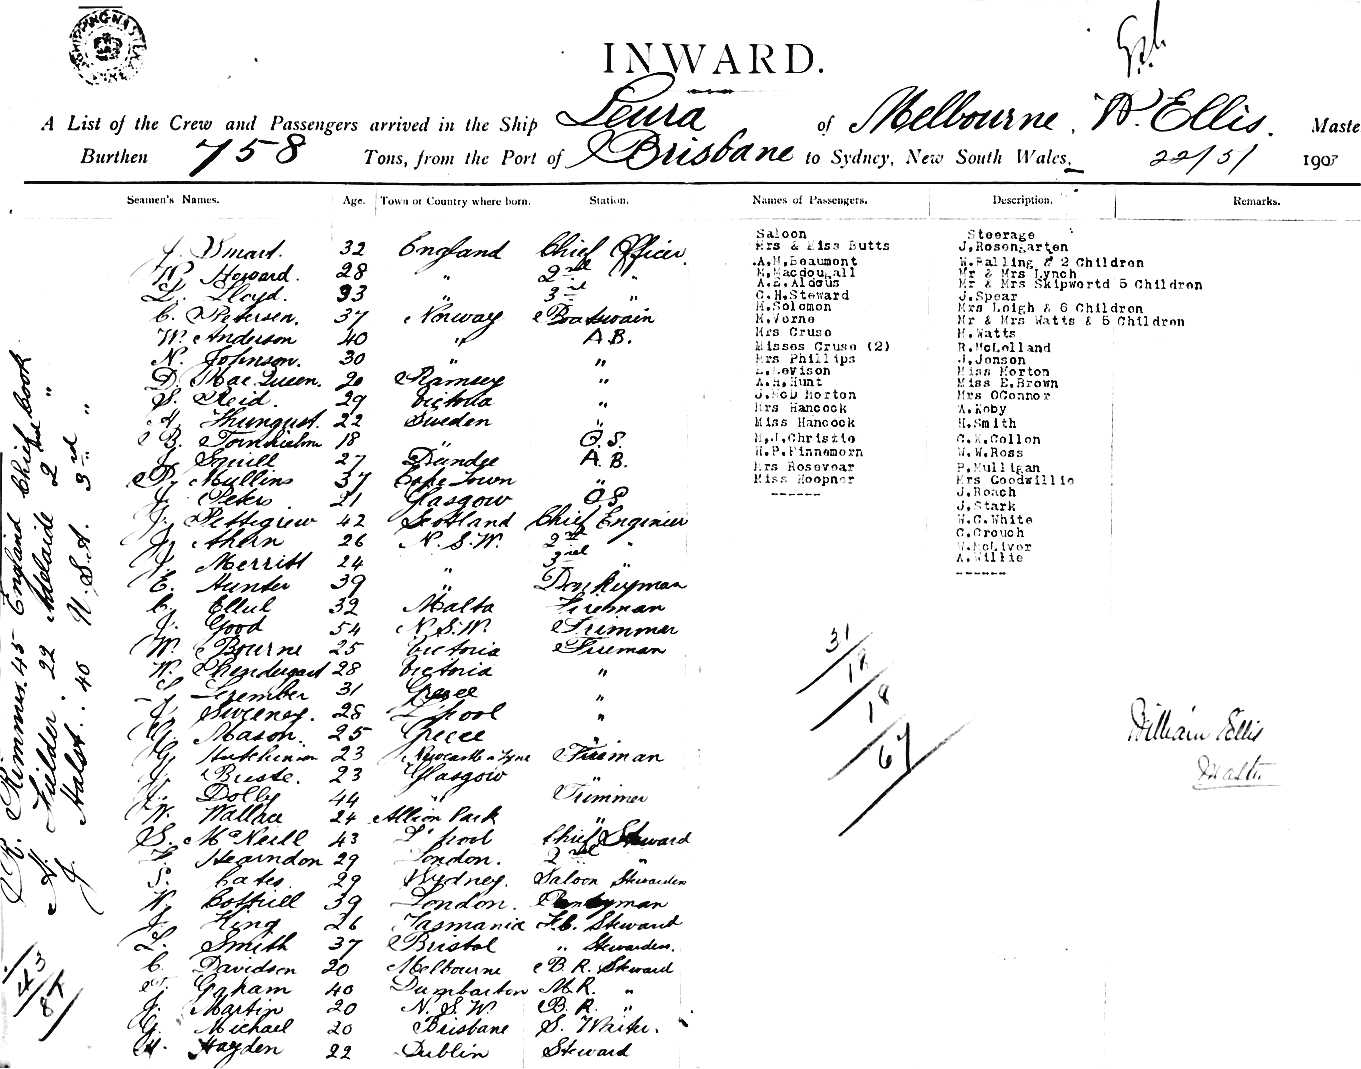 INWARD.
A List of the Crew and Passengers arrived in the Ship Leura of Melbourne, W. Ellis. Maste
Burthen 758 Tons, from the Port of Brisbane to Sydney, New South Wales, 22/5/ 1907
Seamen's Names. Age. Town or Country where born. Station. Names of Passengers. Description. Remarks.
J. Smart. 32 England Chief Officer.
W. Howard. 28 " 2nd "
L. Lloyd. 33 " 3rd "
C. Petersen. 37 Norway Boatswain
W. Anderson 40 " A.B.
N. Johnson. 30 " "
D. MacQueen. 20 Ramsey "
S. Reid. 29 Victoria "
22 Sweden "
B. 18 " O.S.
J. Squill 27 Dundee A.B.
D. Mullins 37 Cape Town "
J. Peters 21 Glasgow O.S.
J. Pettigrew 42 Scotland Chief Engineer
J. Ahern 26 N.S.W. 2nd "
J. Merritt 24 " 3rd "
E. Hunter 39 " Donkeyman
C. Ellul 32 Malta Fireman
J. Good 54 N.S.W. Trimmer
W. Bourne 25 Victoria Fireman
W. 28 Victoria "
31 Greece "
J. Sweeney. 28 L'pool "
G. Mason. 25 Greece "
G. Hutchinson 23 Newcastle o Tyne Fireman
J. 23 Glasgow "
J. Dolby 44 " Trimmer
W. Wallace 24 Albion Park "
S. McNeill 43 L'pool Chief Steward
F. Hearndon 29 London. 2nd "
S. Cates. 29 Sydney. Saloon Stewardess
W. Cottrell 39 London. Pantryman
J. King 26 Tasmania F.C. Steward
L. Smith 37 Bristol " Stewardess.
C. Davidson 20 Melbourne B.R. Steward
T. Gaham 40 Dumbarton M.R. "
J. Martin 20 N.S.W. B.R. "
G. Michael 20 Brisbane S. Waiter.
H. Hayden 22 Dublin Steward
R. Rimmer. 45 England Chief Cook
A. Fielder 22 Adelaide 2nd "
J. Halst 40 U.S.A. 3rd "
43
87
Saloon
Mrs & Miss Butts
A.M.Beaumont
M.Macdougall
A.E.Aldous
C.H.Steward
M.Solomon
M.Vorne
Mrs Cruso
Misses Cruso (2)
Mrs Phillips
L.Levison
A.H.Hunt
J.McD Morton
Mrs Hancock
Miss Hancock
M.J.Christie
H.P.Finnemorn
Mrs Rosevear
Miss Hoopner
------
Steerage
J.Rosengarten
W.Palling & 2 Children
Mr & Mrs Lynch
Mr & Mrs Skipwortd 5 Children
J.Spear
Mrs Leigh & 6 Children
Mr & Mrs Watts & 5 Children
M.Watts
R.McLelland
J.Jonson
Miss Morton
Miss E.Brown
Mrs OConnor
A.Roby
H.Smith
C.K.Collon
W.W.Ross
P.Mulligan
Mrs Goodwillie
J.Roach
J.Stark
W.C.White
C.Crouch
W.McLivor
A.Willie
------
31
18
18
67
William Ellis
Master